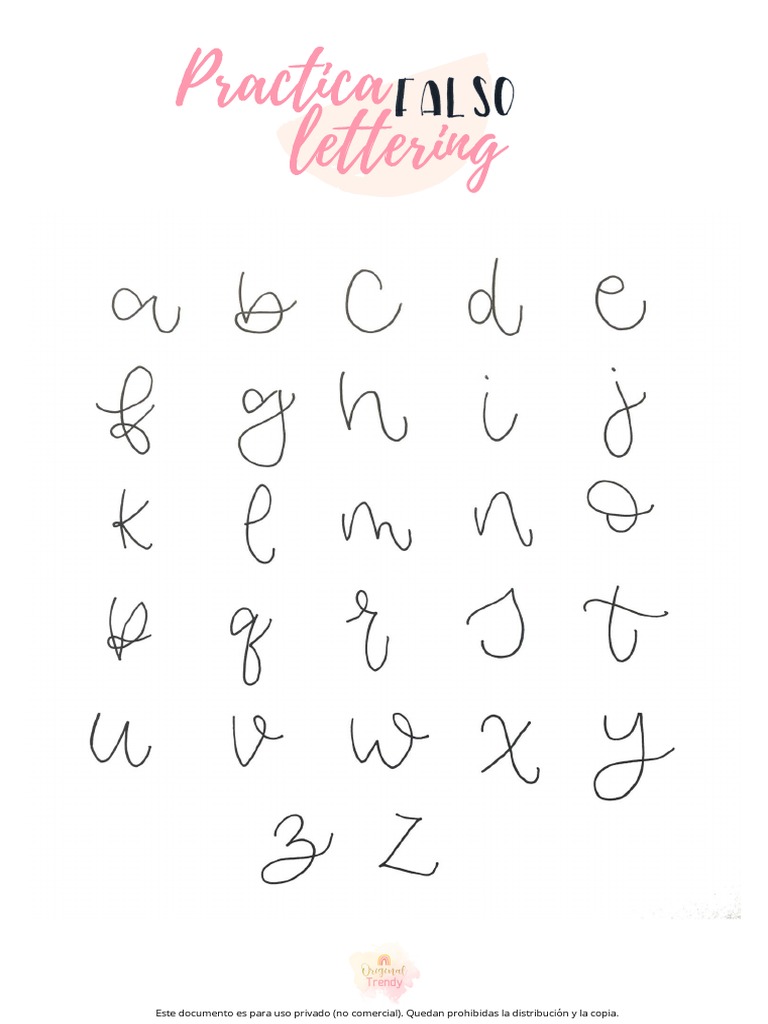 Practica FALSO
lettering
a b c d e
f g h i j
k l m n o
p q r s t
u v w x y
z z
Original
Trendy
Este documento es para uso privado (no comercial). Quedan prohibidas la distribución y la copia.